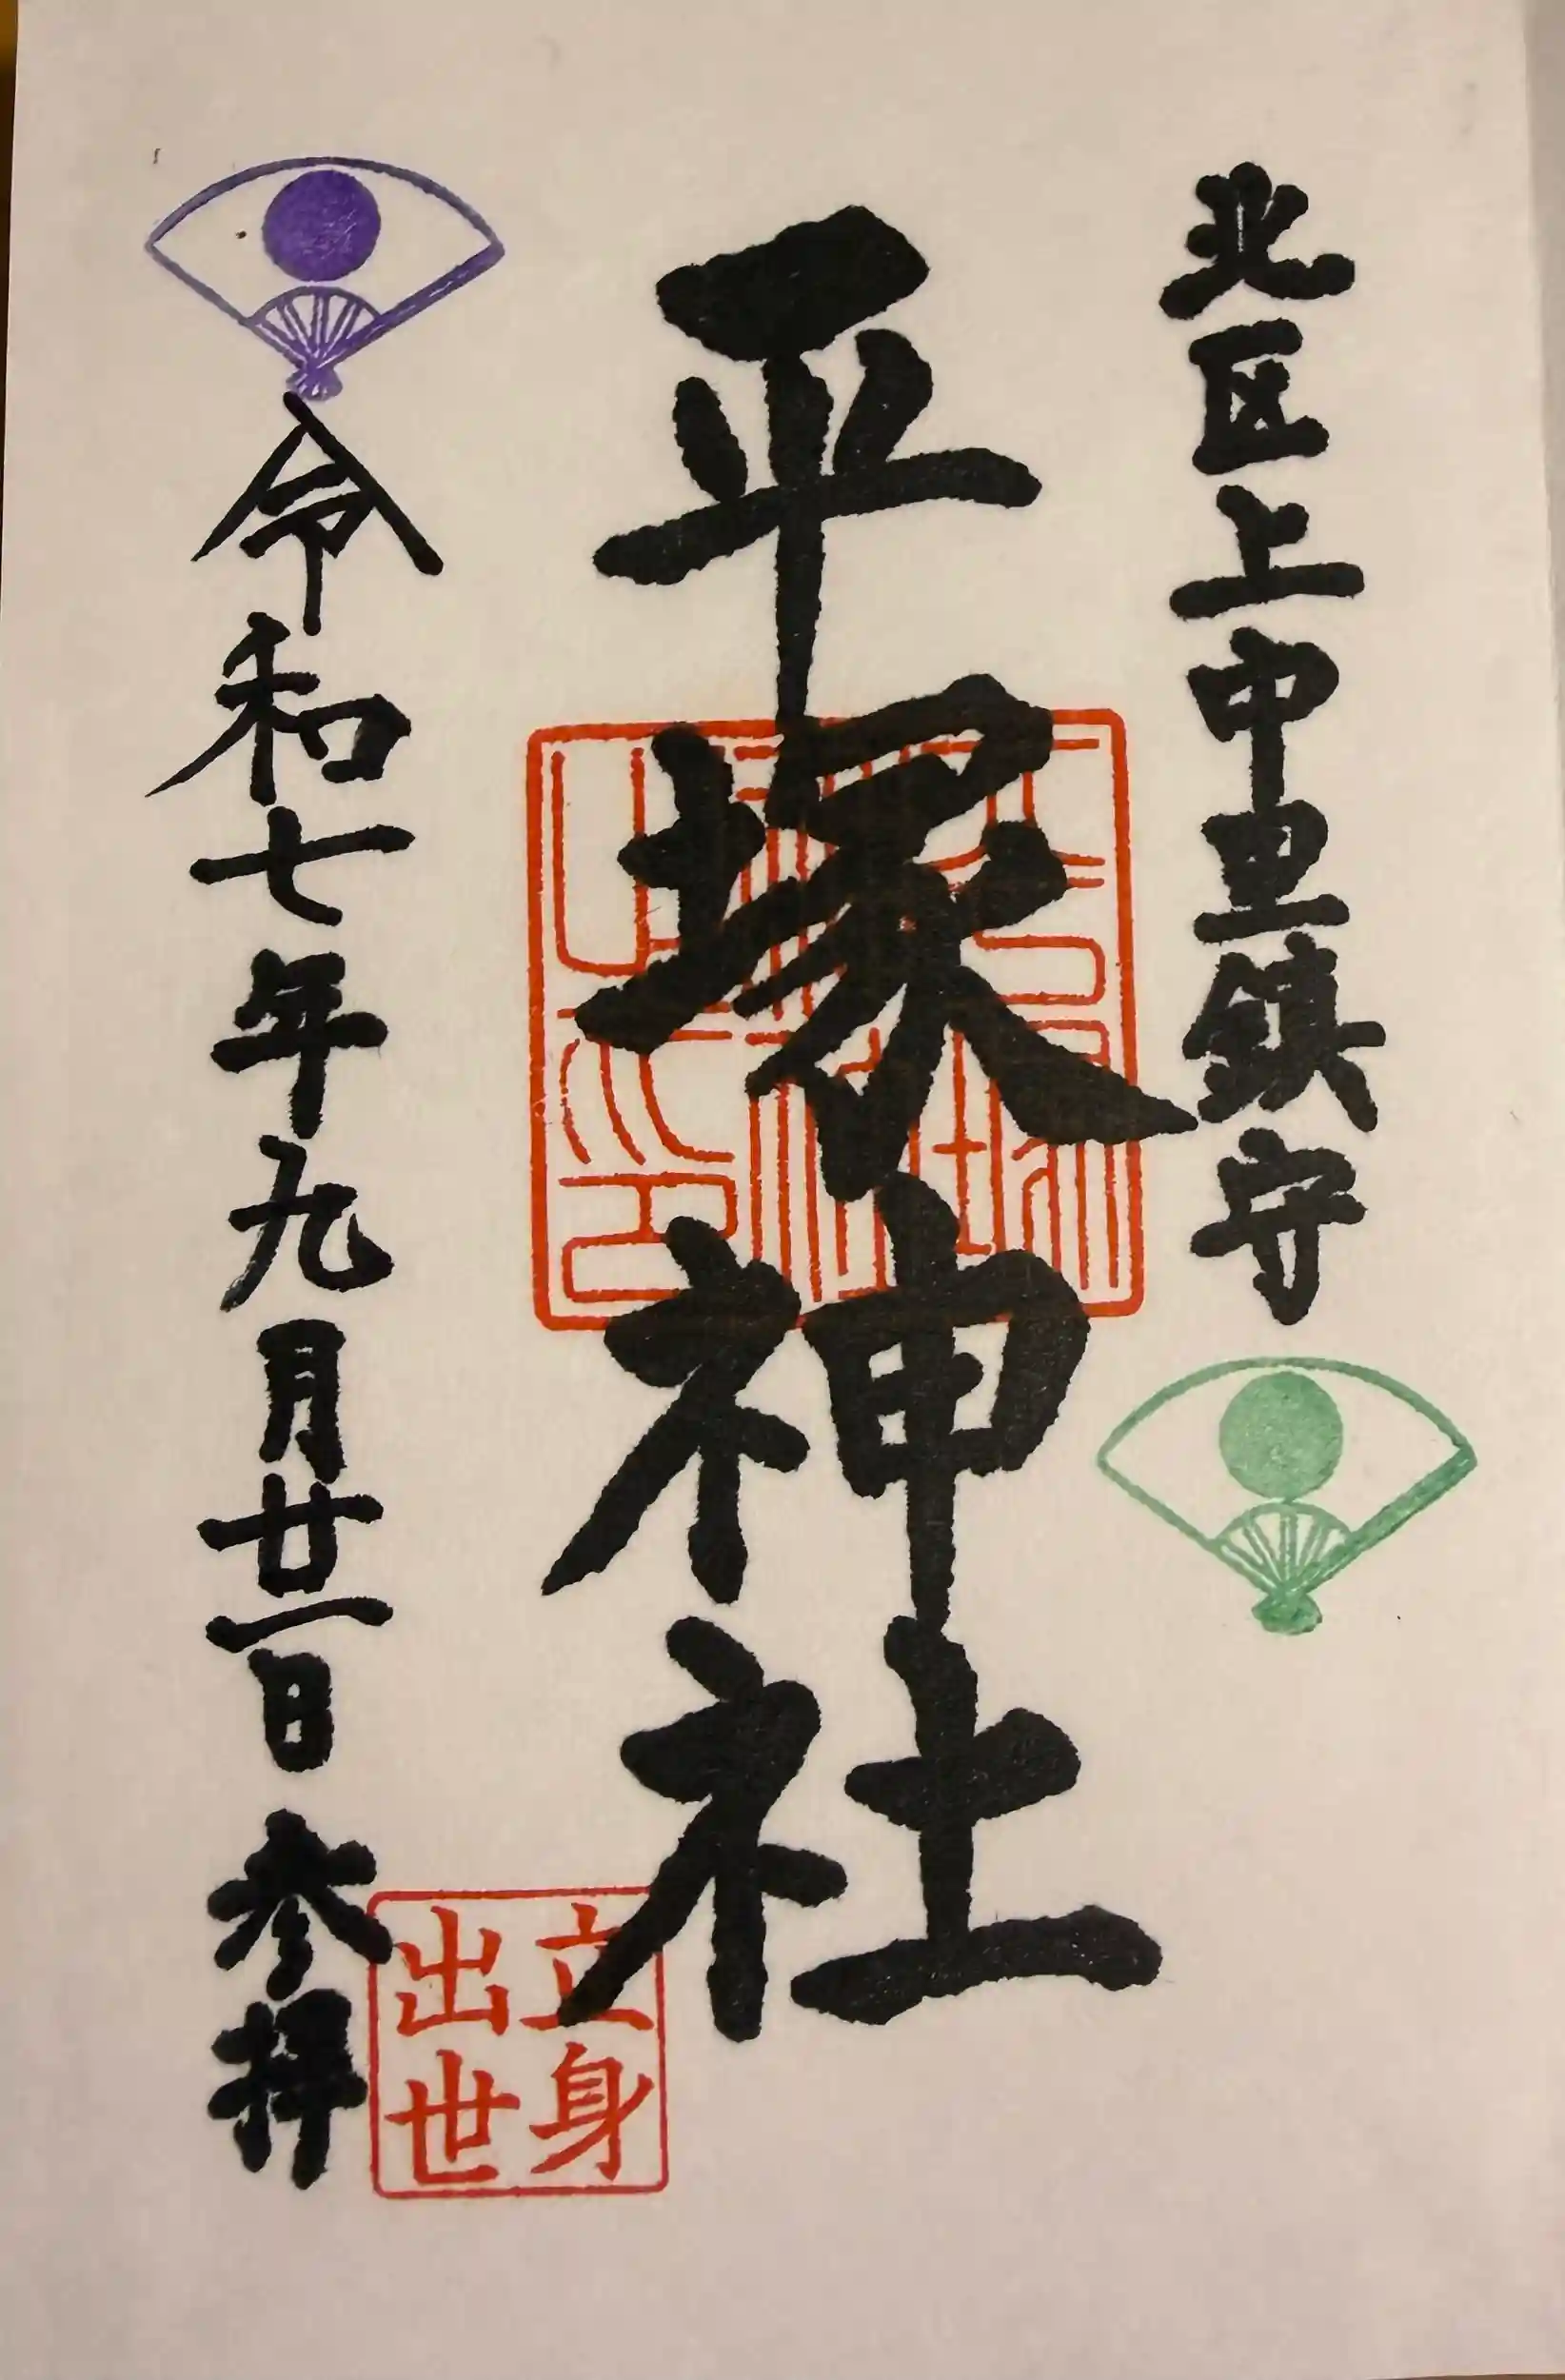 北区上中里鎮守
平塚神社
令和七年九月廿一日 参拝
立身
出世